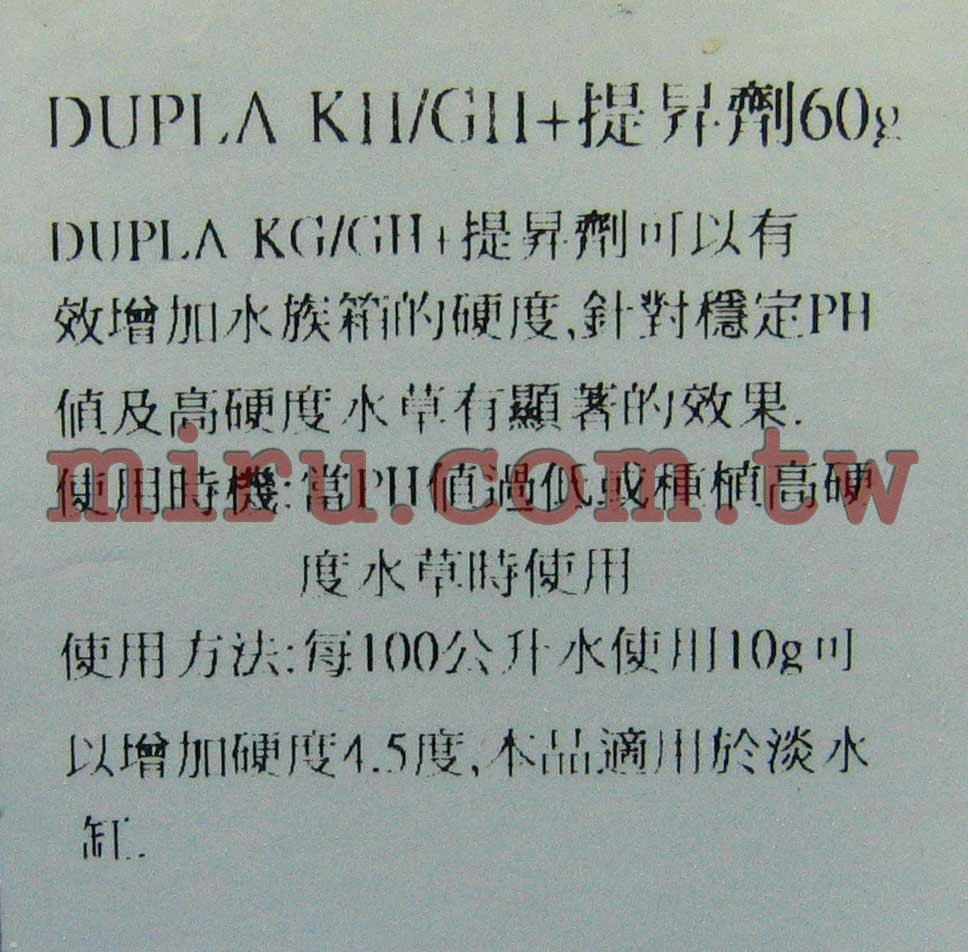 DUPLA KH/GH+提昇劑60g
DUPLA KG/GH+提昇劑可以有
效增加水族箱的硬度,針對穩定PH
值及高硬度水草有顯著的效果.
使用時機:當PH值過低或種植高硬
miru.com.tw
度水草時使用
使用方法:每100公升水使用10g可
以增加硬度4.5度,本品適用於淡水
缸.